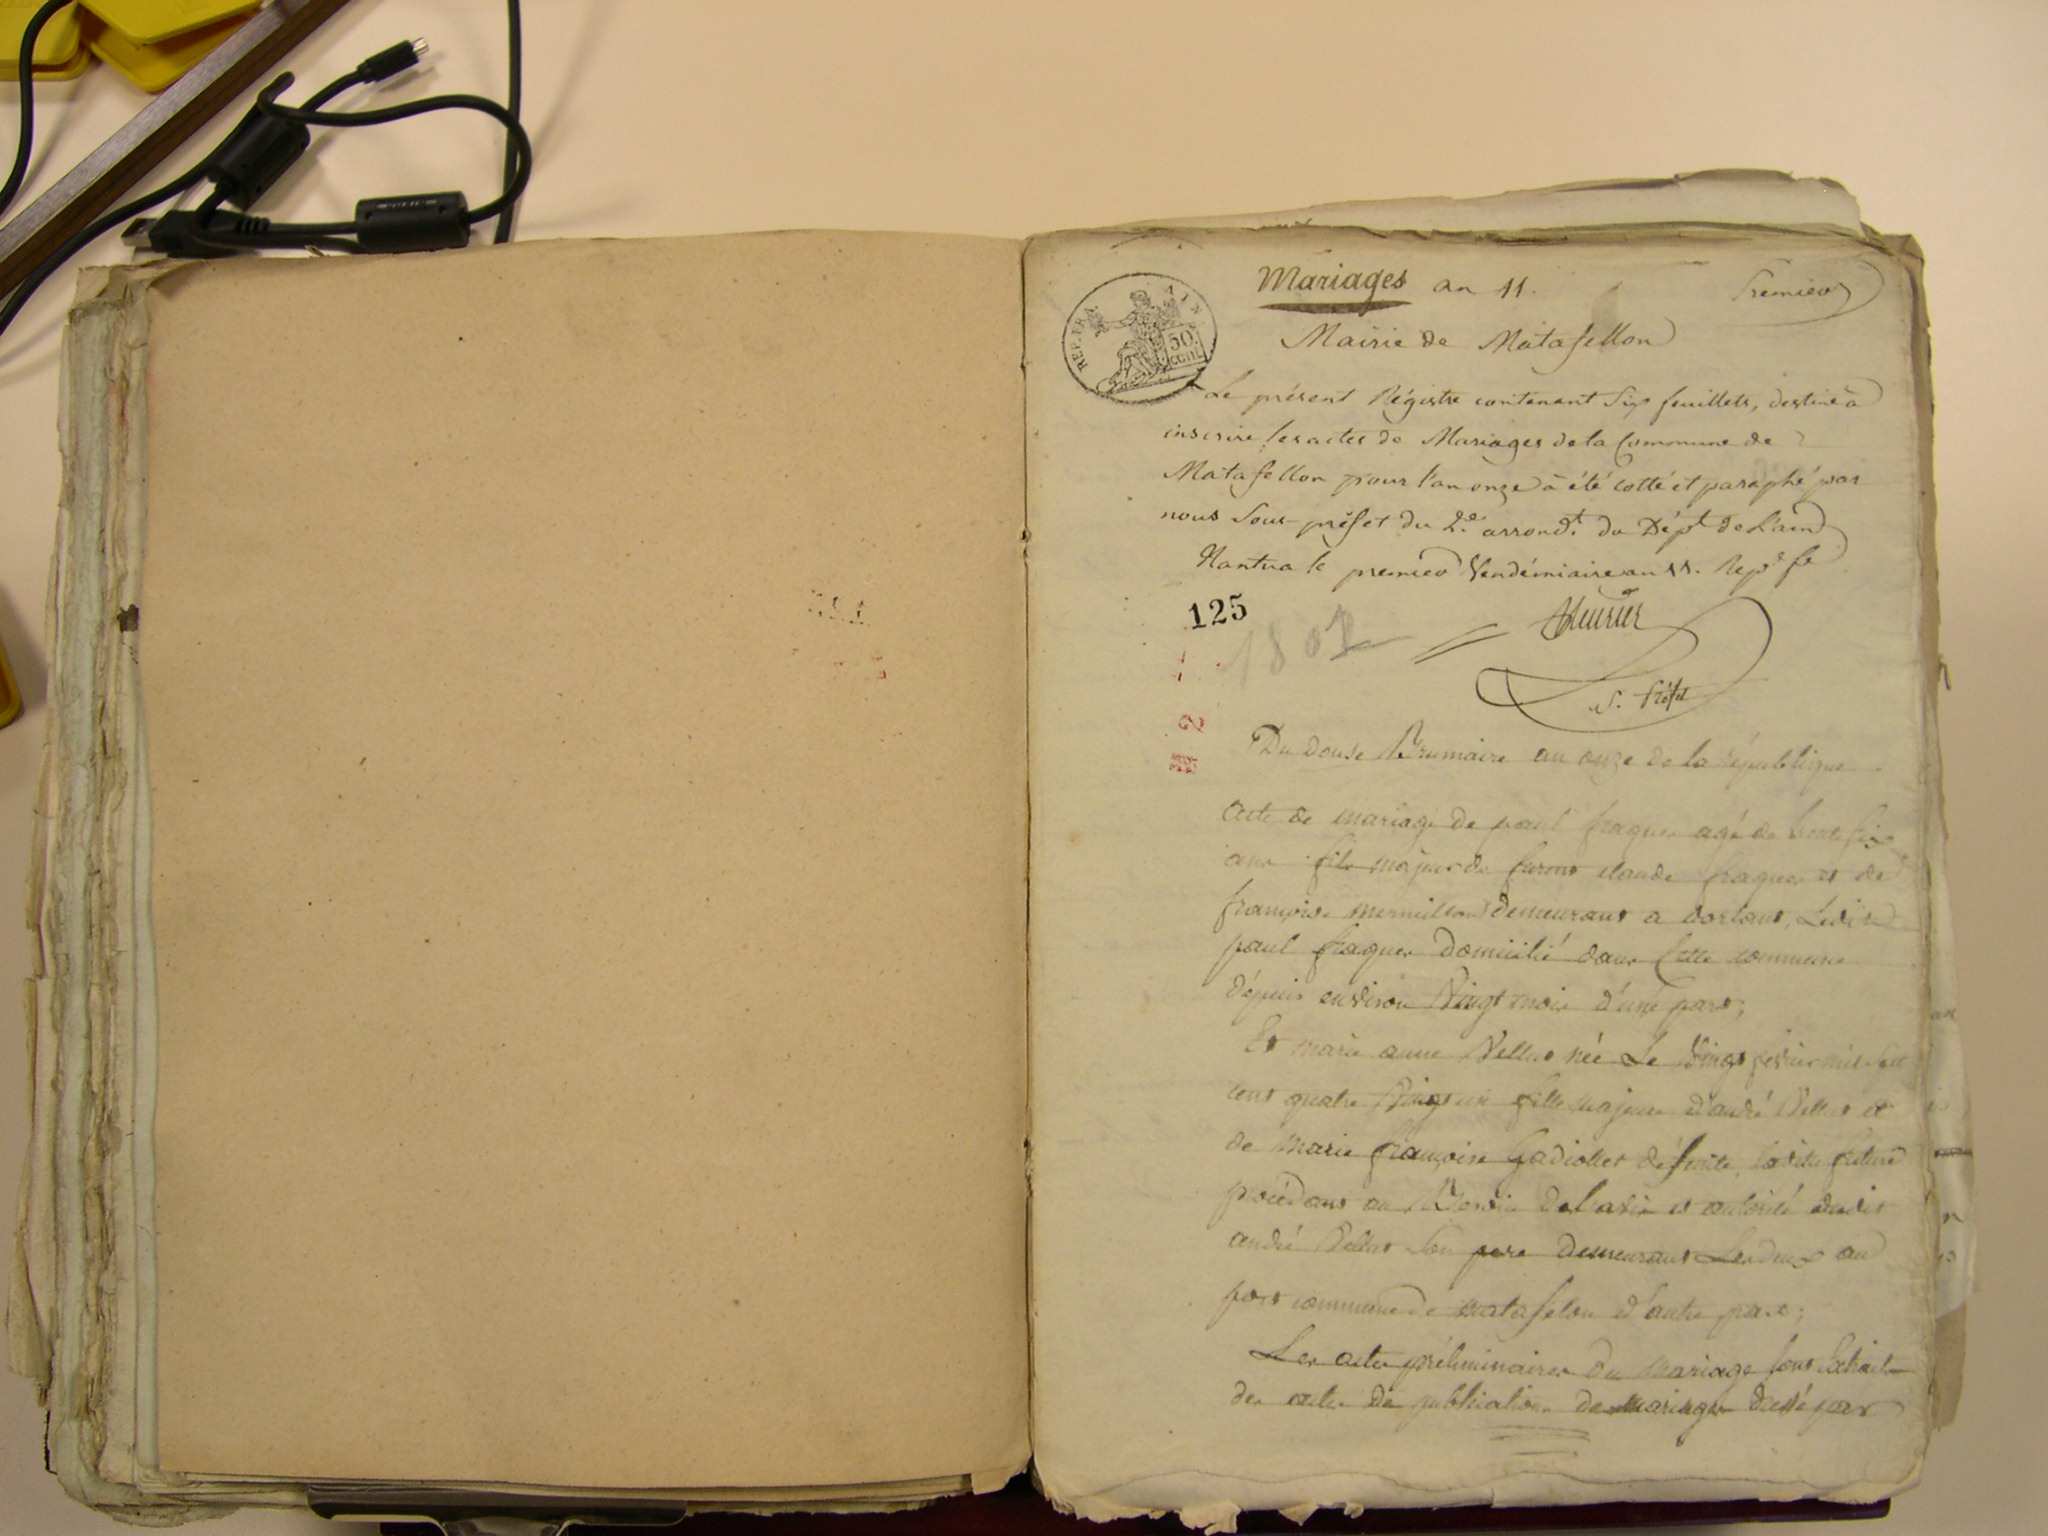 Mariages an 11.
Premier
REP. FRA. AIN
50 CENT.
Mairie de Matafellon
Le présent Régistre contenant Six feuillets, destiné à
inscrire les actes de Mariages de la Commune de
Matafellon pour l'an onze à été cotté et paraphé par
nous Sous-préfet du 2e. arrondt. du Dépt. de L'ain
Nantua le premier Vendémiaire an 11. Repe. fse
125
1802
S. Préfet
Du douse Brumaire an onze de la république
Acte de mariage de paul fraquer agé de trente six
ans fils majeur de furent claude fraquer et de
françoise mermillon demeurant a dortans, Ledit
paul fraquer domicilié dans Cette commune
dépuis environ Vingt mois d'une part;
Et marie anne Vellet née Le Vingt fevrier mil sept
cent quatre Vingt un fille majeure d'andré Vellet et
de marie françoise Gadiollet défunte, ladite future
procédant au de l'avis et autorité dudit
andré Vellet son pere demeurant Les deux au
port commune de matafelon d'autre part;
Les actes préliminaires du mariage sont Extrait
des actes de publication de mariages par